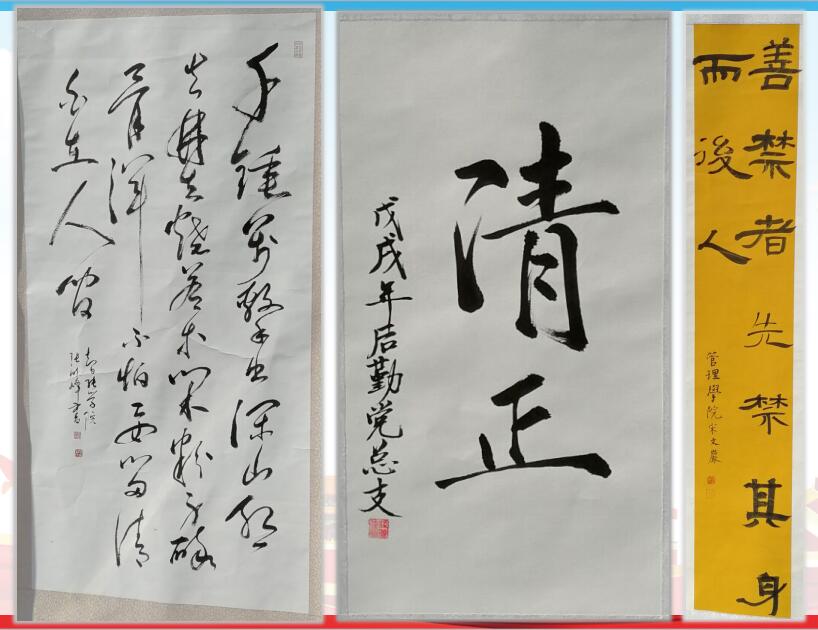 千锤萬擊出深山烈
火焚燒若等閒粉身碎
骨渾不怕要留清
白在人間
学院
清正
戊戌年后勤党总支
善禁者先禁其身
而後人
管理學院宋文